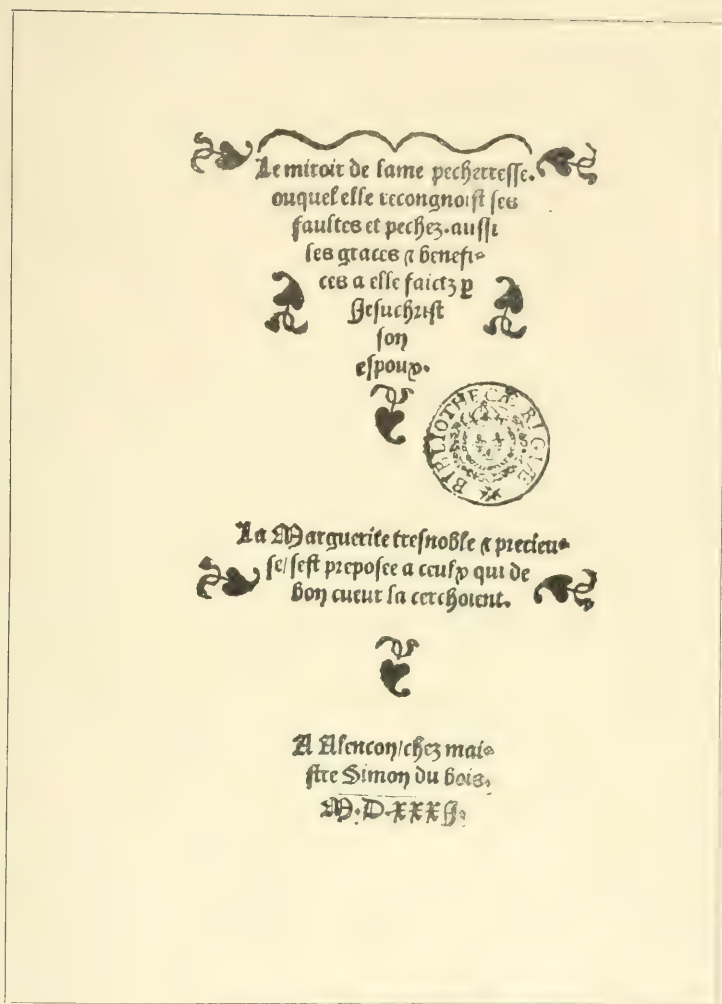 Le miroir de lame pecherresse.
ouquel elle recongnoist ses
faultes et pechez. aussi
ses graces & benefi-
ces a elle faictz p
Jesuchrist
son
espoux.
BIBLIOTHECÆ REGIÆ
La Marguerite tresnoble & precieu-
se/ sest preposee a ceulx qui de
bon cueur la cerchoient.
A Alencon/ chez mai-
stre Simon du bois.
M. D. xxxj.